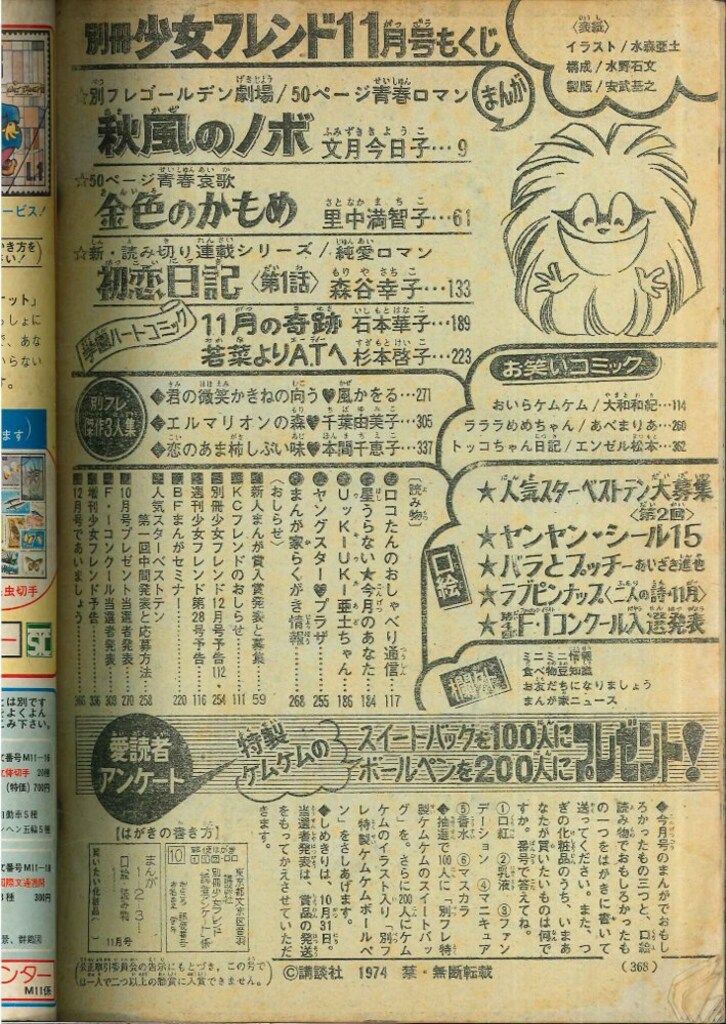 別冊少女フレンド11月号もくじ
〈表紙〉
イラスト/水森亜土
構成/水野石文
製版/安武基之
☆別フレゴールデン劇場/50ページ青春ロマン
まんが
秋風のノボ 文月今日子…9
☆50ページ青春哀歌
金色のかもめ 里中満智子…61
☆新・読み切り連載シリーズ/純愛ロマン
初恋日記〈第1話〉 森谷幸子…133
11月の奇跡 石本華子…189
若菜よりA.Tへ 杉本啓子…223
別フレ傑作3人集
◆君の微笑かきねの向う♥風かをる…271
◆エルマリオンの森♥千葉由美子…305
◆恋のあま柿しぶい味♥本間千恵子…337
お笑いコミック
おいらケムケム/大和和紀…114
ラララめめちゃん/あべまりあ…260
トッコちゃん日記/エンゼル松本…362
口絵
★人気スターベストテン大募集
〈第2回〉
★ヤンヤン・シール15
★バラとプッチーあいざき進也
★ラブピンナップ〈二人の詩・11月〉
F・Iコンクール入選発表
ミニミニ情報
食べ物豆知識
お友だちになりましょう
まんが家ニュース
〔読み物〕
●ロコたんのおしゃべり通信…117
●星うらない★今月のあなた…184
●UッKIUKI亜土ちゃん…186
●ヤングスター♥プラザ…255
●まんが家らくがき情報…268
〈おしらせ〉
新人まんが賞入賞発表と募集…59
KCフレンドのおしらせ…111
別冊少女フレンド12月号予告…112・254
週刊少女フレンド第28号予告…116
BFまんがセミナー…220
人気スターベストテン
第一回中間発表と応募方法…258
10月号プレゼント当選者発表…270
F・Iコンクール当選者発表…303
増刊少女フレンド予告…336
12月号であいましょう…366
愛読者アンケート
特製ケムケムの
スイートバッグを100人に
ボールペンを200人に
プレゼント!
◆今月号のまんがでおもし
ろかったもの三つと、口絵・
読み物でおもしろかったも
の一つをはがきに書いて
送ってください。また、つ
ぎの化粧品のうち、いまあ
なたが買いたいものは何で
すか。番号で答えてね。
①口紅 ②乳液 ③ファン
デーション ④マニキュア
⑤香水 ⑥マスカラ
◆抽選で100人に「別フレ特
製ケムケムのスイートバッ
グ」を。さらに200人にケム
ケムのイラスト入り「別フ
レ特製ケムケムボールペ
ン」をさしあげます。
◆しめきりは、10月31日。
当選者発表は、賞品の発送
をもってかえさせていただ
きます。
【はがきの書き方】
10
東京都文京区音羽
講談社
別冊少女フレンド
まんが
1 2 3
口絵・読み物
買いたい化粧品
11月号
©講談社 1974 禁・無断転載
(368)
ービス!
文番号M11-16
20種
(特価)700円
300円
ンター
M11係